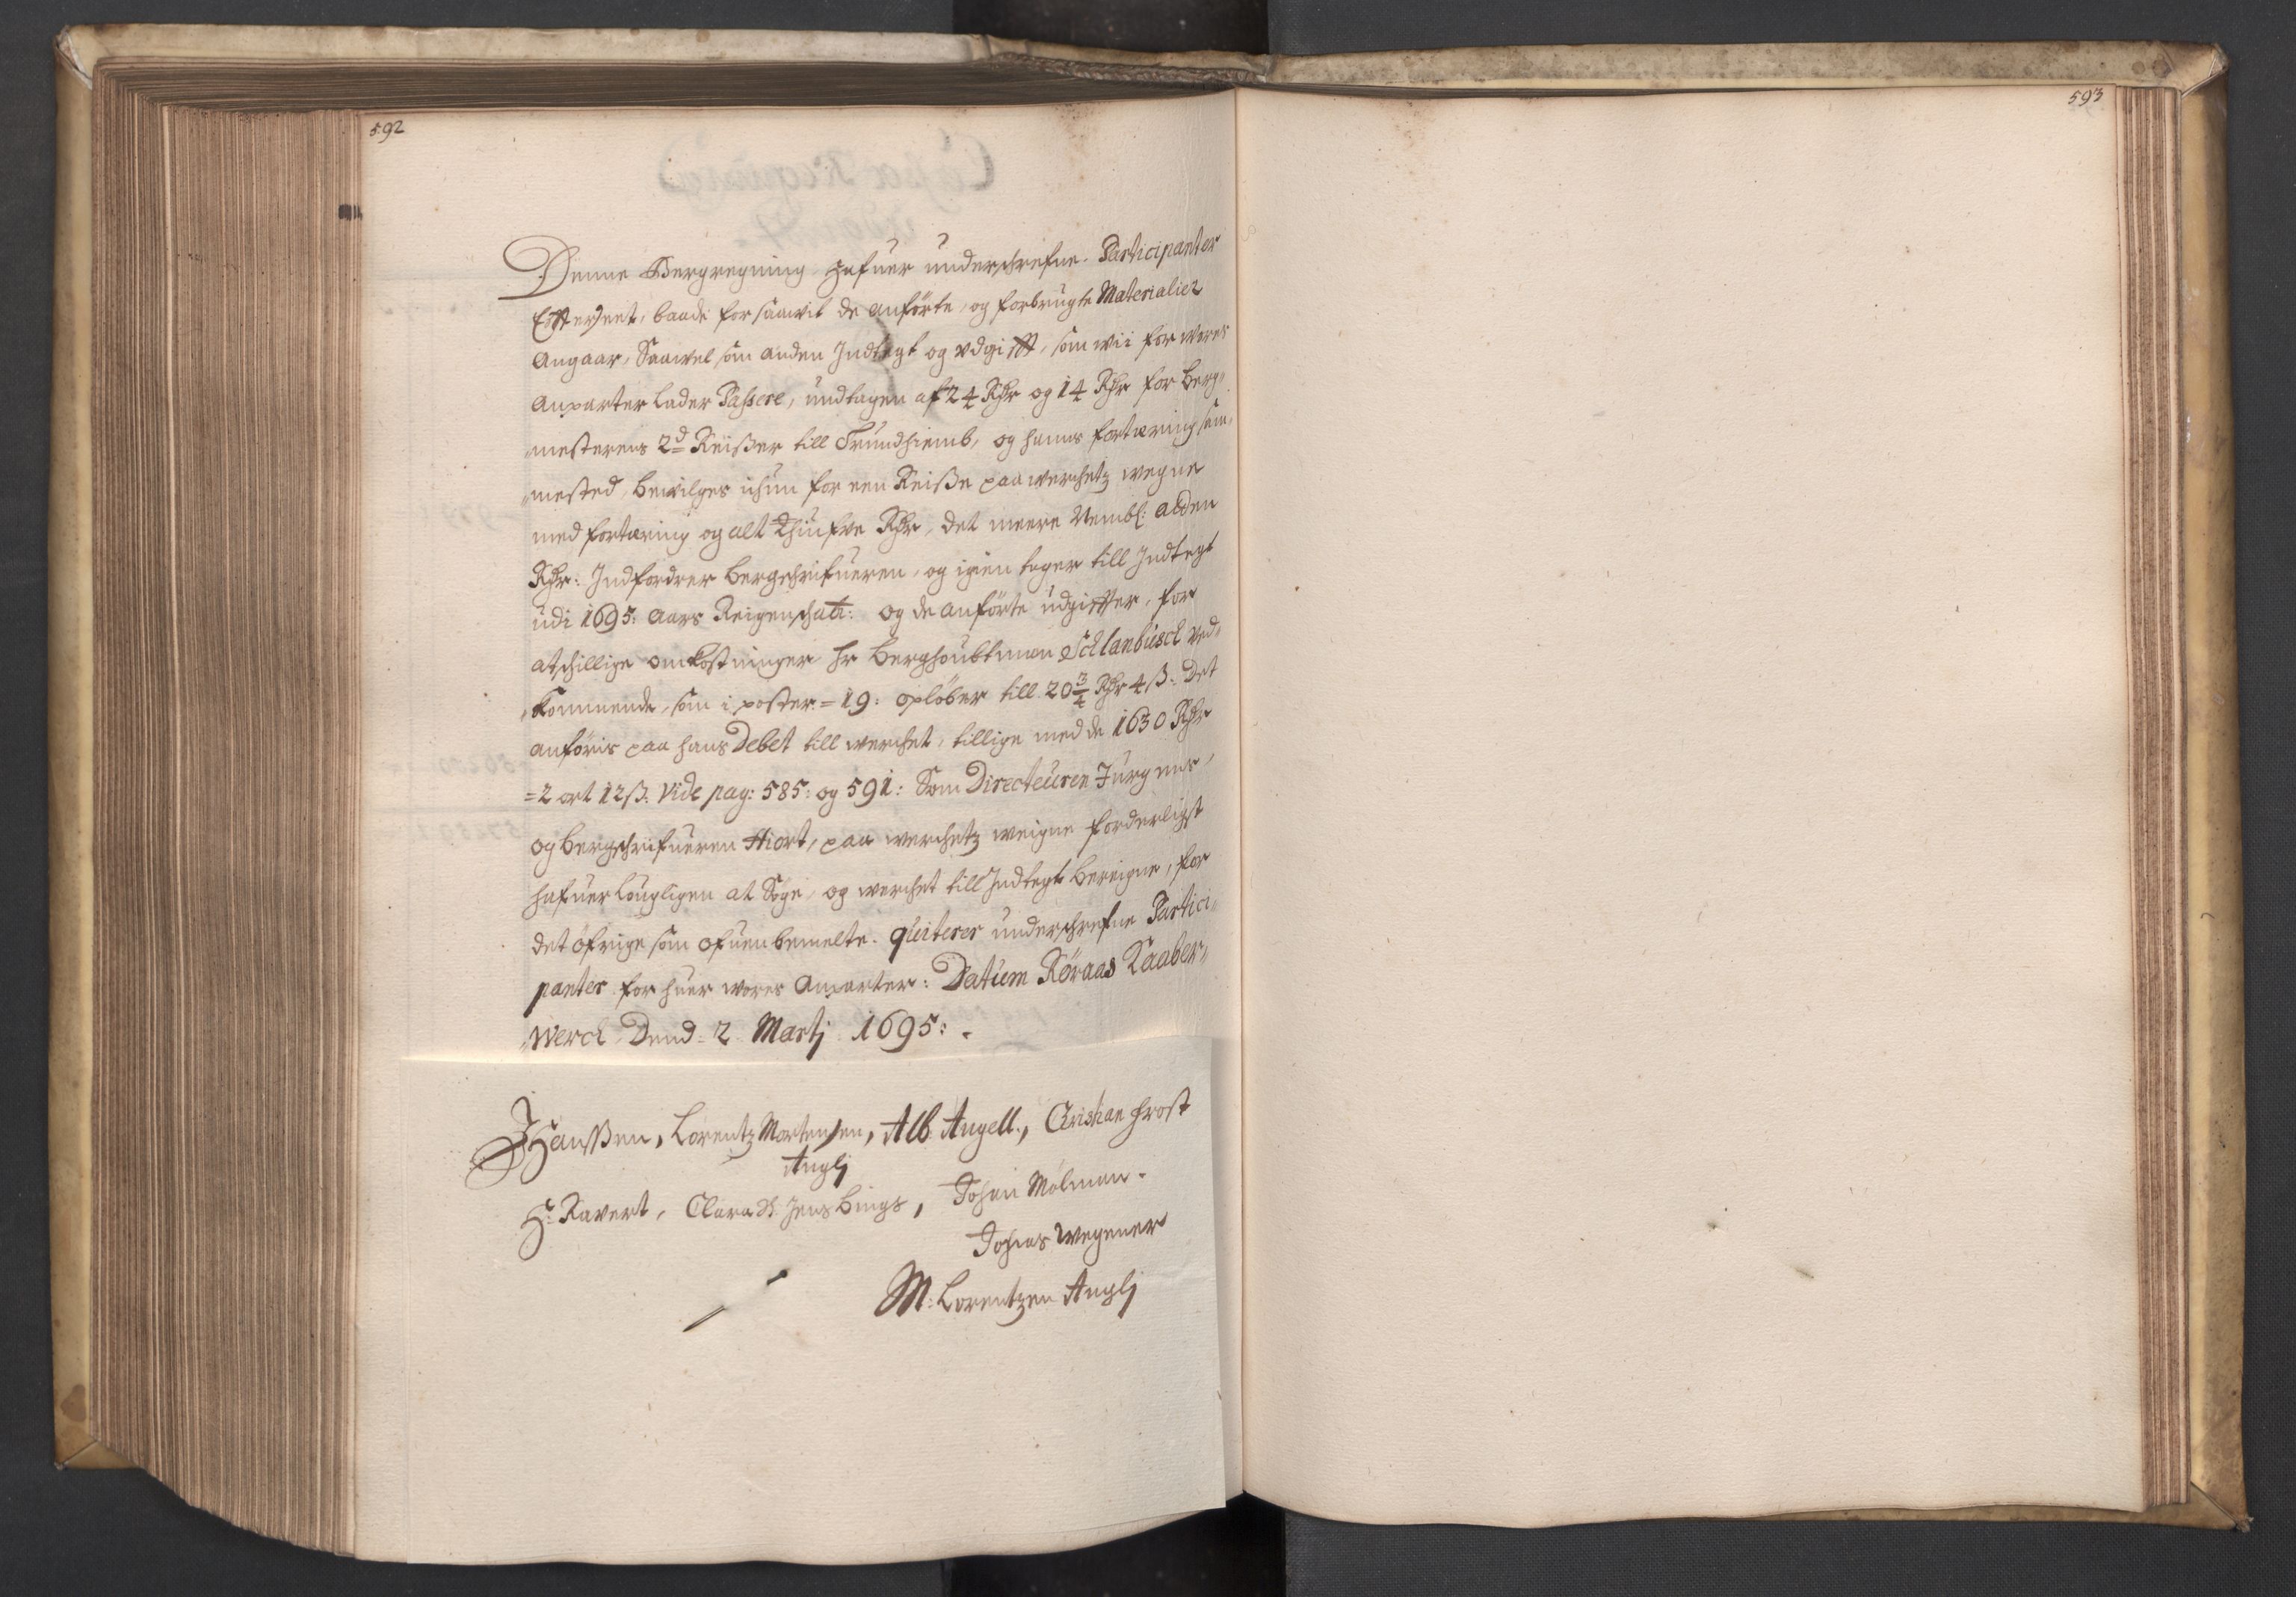 592
Denne Bergregning hafuer underschrefne Participanter
Efftterseet, baade forsaavit de anförte, og forbrugte Materialier
Angaar, Saavel som anden Indtegt og vdgifft, som wii for wores
Anparter lader Passere, undtagen af 24 Rdr og 14 Rdr for Berg„
„mesterens 2d Reißer till Trundhiemb, og hanns fortæring sam„
„mested, bewilges ichun for een Reiße paa werchetz wegne
med fortæring og alt Thiufve Rdr, det meere Nembl: atden
Rdr: Indfordrer bergschrifueren, og igien tager till Indtegt
udi 1695: Aars Reigenschab: og de anförte udgiffter, for
atschillige omkostninger Hr Berghoubtman Schlanbusch ved„
„kommende, som i poster = 19: opløber till 20¾ Rdr 4 ß: Det
anföris paa hans Debet till werchet, tillige med de 1630 Rdr
=2 ort 12ß: Vide pag: 585: og 591: Som Directeuren Jürgens,
og bergschrifueren Hiort, paa werchetz weigne forderligst
hafuer lougligen at Söge, og werchet till Indtegt bereigne, for
det öfrige som ofuenbemelte. quiterer underschrefne Partici„
panter for huer wores Anparter: Datum Röraas Kaaber„
„Werch Dend 2 Martj 1695:
JHanßen, Lorentz Mortensen, Alb. Angell., Christian Frost
Anglj
H: Kavert, Clara Sl Jens Bings, Johan Mölman.
Tohias Wegener
M: Lorentzen Anglj
593